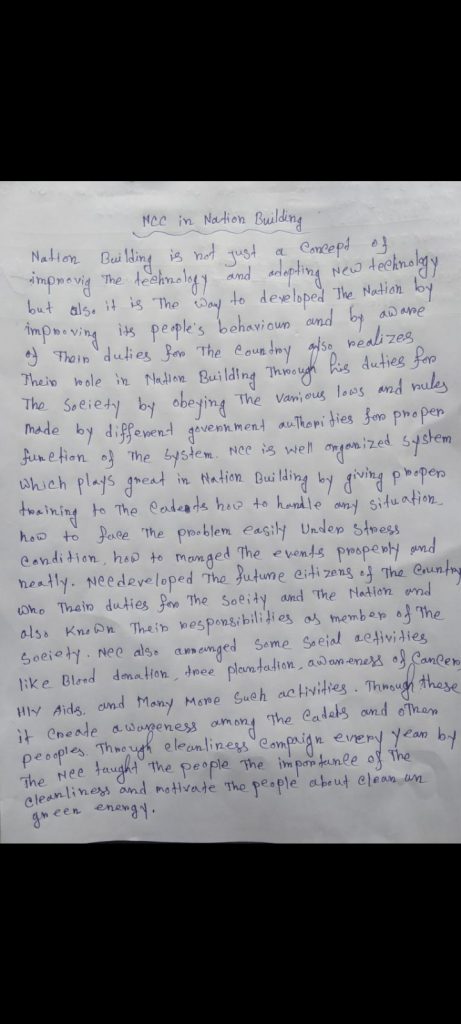 NCC in Nation Building
Nation Building is not just a concept of
improvig The technology and adopting New technology
but also it is The way to developed The Nation by
improving its people's behaviour and by aware
of Their duties for The country also realizes
Their role in Nation Building Through his duties for
The Society by obeying The various laws and rules
made by different government authorities for proper
function of The System. NCC is well organized system
which plays great in Nation Building by giving proper
training to The Cadets how to handle any situation
how to face The problem easily Under Stress
condition, how to manged The events properly and
neatly. NCC developed The future citizens of The Country
who Their duties for The Soeity and The Nation and
also Known Their responsibilities as member of The
Society. NCC also arranged Some Social activities
like Blood donation, tree plantation, awareness of Cancer
HIV Aids, and Many More Such activities. Through these
it Create awareness among The Cadets and other
peooples. Through cleanliness Compaign every year by
The NCC taught The people The importance of The
cleanliness and motivate The people about clean un
green energy.